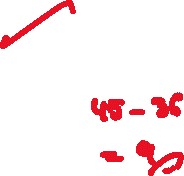 45 - 36
= 9